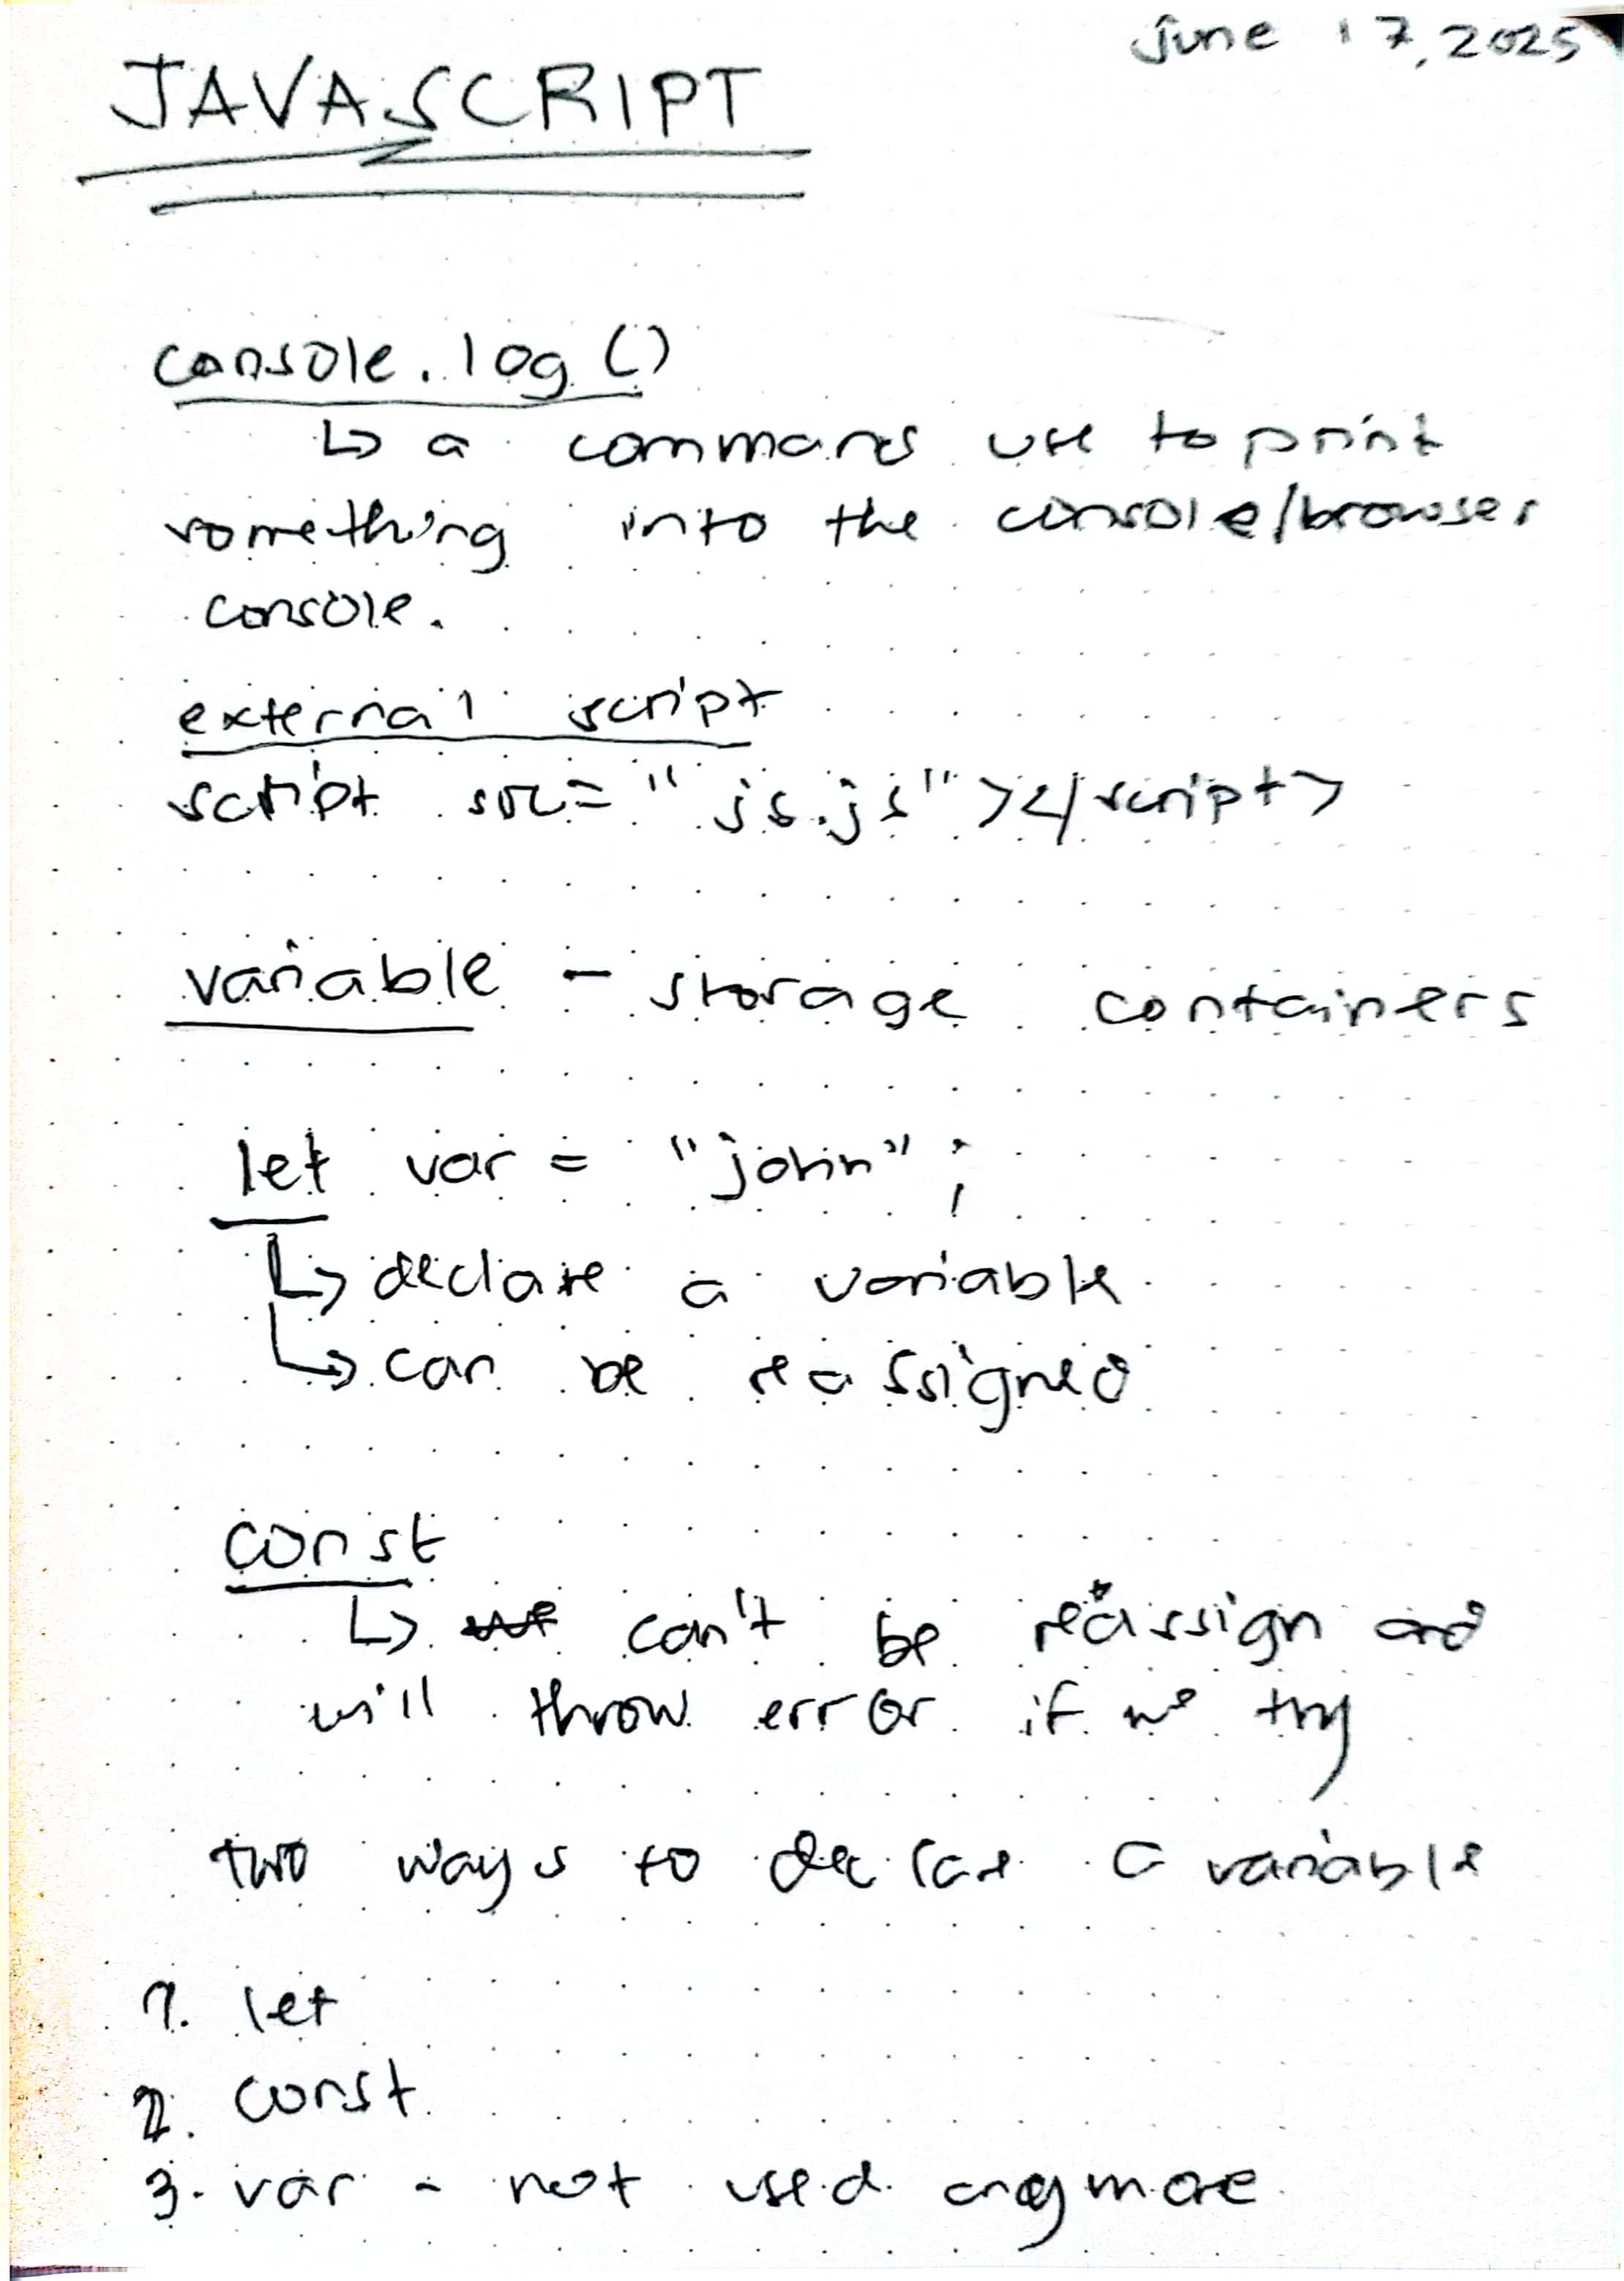 june 17, 2025
JAVASCRIPT
console.log()
↳ a command use to print
something into the console/browser
console.
external script
script src="js.js"></script>
variable - storage containers
let var = "john";
↳ declare a variable
↳ can be reassigned
const
↳ can't be reassign and
will throw error if we try
two ways to declare a variable
1. let
2. const
3. var - not used anymore